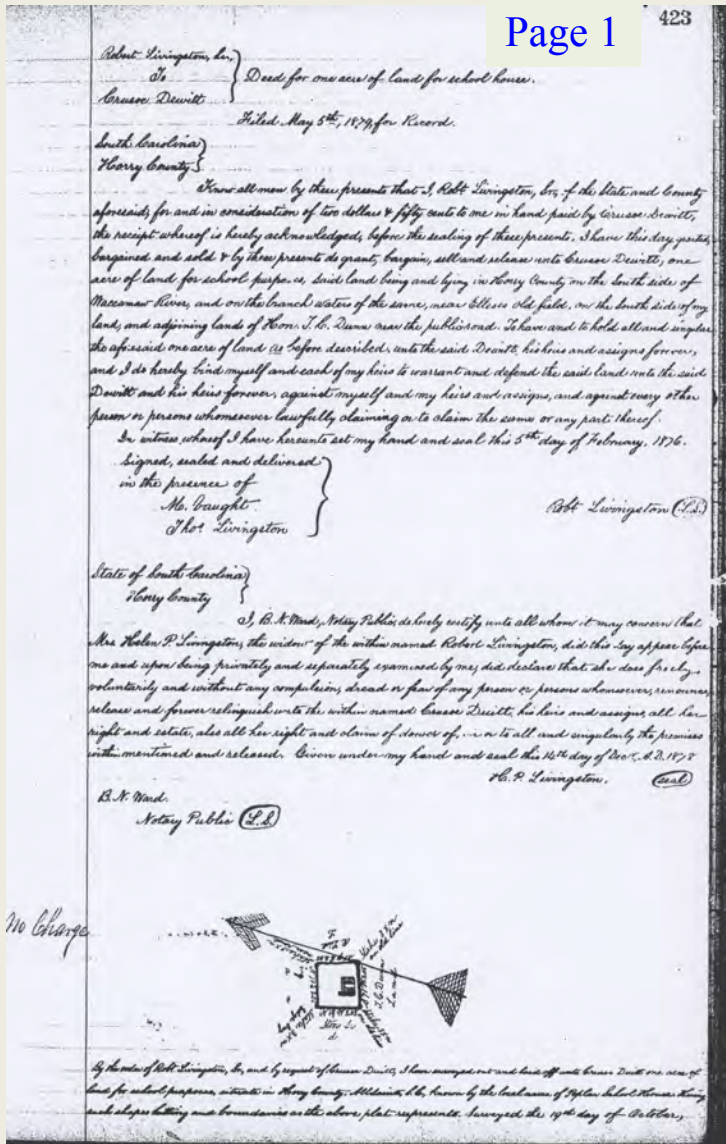 Page 1
423
Robert Livingston, Sr,
To
Crusoe Dewitt
Deed for one acre of land for school house.
Filed May 5th, 1879, for Record.
South Carolina
Horry County
Know all men by these presents that I, Robt Livingston, Sr, of the State and County
aforesaid, for and in consideration of two dollars & fifty cents to me in hand paid by Crusoe Dewitt,
the receipt whereof is hereby acknowledged, before the sealing of these presents, I have this day granted,
bargained and sold & by these presents do grant, bargain, sell and release unto Crusoe Dewitt, one
acre of land for school purposes, Said land being and lying in Horry County on the South side of
Waccamaw River, and on the branch waters of the same, near Ellises old field, on the South side of my
land, and adjoining lands of Hon. T. C. Dunn near the public road. To have and to hold all and singular
the aforesaid one acre of land as before described, unto the said Dewitt, his heirs and assigns forever,
and I do hereby bind myself and each of my heirs to warrant and defend the said land unto the said
Dewitt and his heirs forever, against myself and my heirs and assigns, and against every other
person or persons whomesoever lawfully claiming or to claim the same or any part thereof.
In witness whereof I have hereunto set my hand and seal this 5th day of February, 1876.
Signed, sealed and delivered
in the presence of
M. Vaught
Thos Livingston
Robt Livingston (L.S.)
State of South Carolina
Horry County
I, B. N. Ward, Notary Public, do hereby certify unto all whom it may concern that
Mrs Helen P. Livingston, the widow of the within named Robert Livingston, did this day appear before
me and upon being privately and separately examined by me, did declare that she does freely,
voluntarily and without any compulsion, dread or fear of any person or persons whomsoever, renounce,
release and forever relinquish unto the within named Crusoe Dewitt, his heirs and assigns, all her
right and estate, also all her right and claim of dower of, in or to all and singularly the premises
within mentioned and released. Given under my hand and seal this 14th day of Decr. A.D. 1878
H. P. Livingston. (seal)
B. N. Ward.
Notary Public (L.S.)
No Charge
T. C. Dunn
Land
By the order of Robt Livingston, Sr, and by request of Crusoe Dewitt, I have surveyed out and laid off unto Crusoe Dewitt one acre of
land for school purposes, situate in Horry County, known by the local name of Poplar School House Having
such shapes butting and boundaries as the above plat represents. Surveyed the 19th day of October,